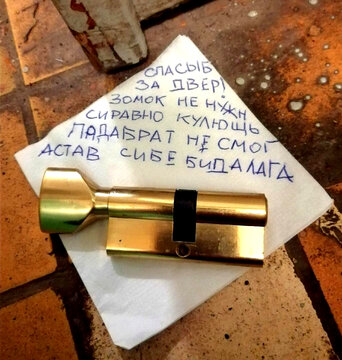 СПАСЫБ
ЗА ДВЕР!
ЗОМОК НЕ НУЖН
СИРАВНО КУЛЮЩЬ
ПАДАБРАТ НЕ СМОГ
АСТАВ СИБЕ БИДАЛАГА